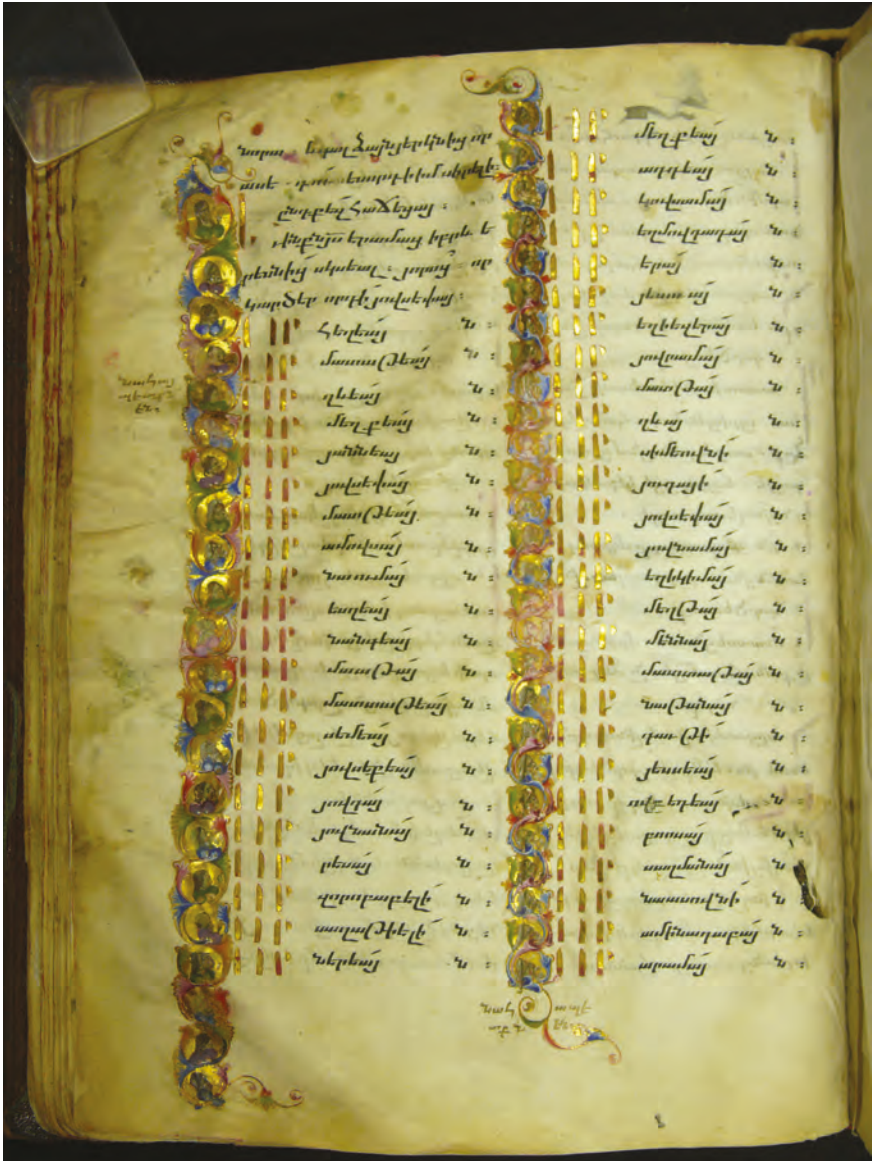 նորա · և գալ ձայն յերկնից որ
ասէ · դու ես որդի իմ սիրելի
ընդ քեզ հաճեցայ ։
յս էր ամաց իբրև ե
րեսնից սկսեալ ։ յորոց · որ
կարծէր որդի յովսեփայ ։
հեղեայ ն ։
մատաթեայ ն ։
ղևեայ ն ։
մեղքեայ ն ։
յաննեայ ն ։
յովսեփայ ն ։
մատաթեայ ն ։
ամովսայ ն ։
նաումայ ն ։
եսղեայ ն ։
նանգեայ ն ։
մաաթայ ն ։
մատտաթեայ ն ։
սեմեայ ն ։
յովսեքեայ ն ։
յովդայ ն ։
յովնանայ ն ։
րեսայ ն ։
զորոբաբելի ն ։
սաղաթիելի ն ։
ներեայ ն ։
մեղքեայ ն ։
ադդեայ ն ։
կովսամայ ն ։
եղմովդադայ ն ։
երայ ն ։
յեսուայ ն ։
եղիեզերայ ն ։
յովրամայ ն ։
մատթայ ն ։
ղևայ ն ։
սիմեովնի ն ։
յուդայի ն ։
յովսեփայ ն ։
յովնամայ ն ։
եղիկիմայ ն ։
մեղթայ ն ։
մեննայ ն ։
մատտաթայ ն ։
նաթանայ ն ։
դաւթի ն ։
յեսսեայ ն ։
ովբեդեայ ն ։
բոոսայ ն ։
սաղմոնայ ն ։
նաասովնի ն ։
ամինադաբայ ն ։
արամայ ն ։